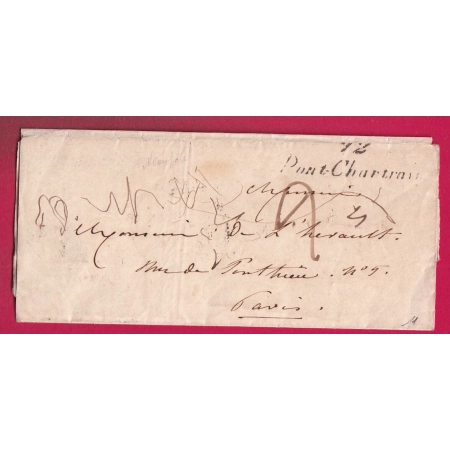 72
Pont-Chartrain
Monsieur
2
Monsieur De L'herault.
Rue de Ponthieu. N° 9.
Paris.